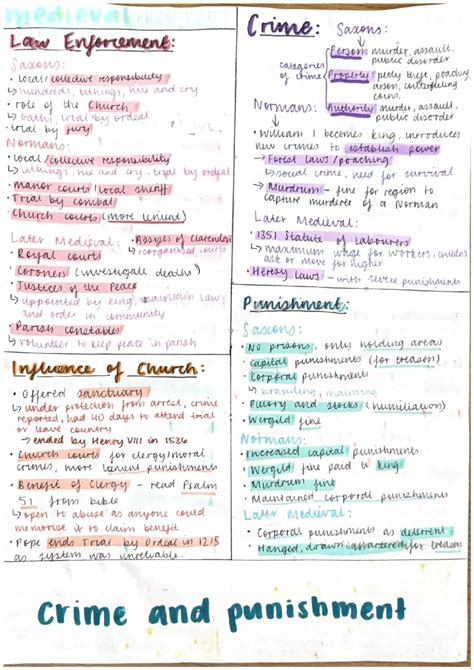 medieval
Law Enforcement:
Saxons:
• local/collective responsibility
↳ hundreds, tithings, hue and cry
• role of the Church
↳ oaths, trial by ordeal
• trial by jury
Normans:
• local/collective responsibility
↳ tithings, hue and cry, trial by ordeal
• Manor courts/local sheriff
• Trial by combat
• Church courts (more lenient)
Later Medieval: • Assizes of Clarendon
• Royal courts ↳ reorganised courts
• Coroners (investigate deaths)
• Justices of the Peace
↳ appointed by king, maintain law
and order in community
• Parish constables
↳ volunteer to keep peace in parish
Influence of Church:
• Offered sanctuary
↳ under protection from arrest, crime
reported, had 40 days to attend trial
or leave country
→ ended by Henry VIII in 1536
• Church courts for clergy/moral
crimes, more lenient punishments
• Benefit of Clergy - read Psalm
51 from bible
↳ open to abuse as anyone could
memorise it to claim benefit
• Pope ends Trial by Ordeal in 1215
as system was unreliable.
Crime: Saxons:
categories of crime
Person: murder, assault,
public disorder
Property: petty theft, poaching,
arson, counterfeiting
coins,
Authority: murder, assault,
public disorder
Normans:
• William I becomes king, introduces
new crimes to establish power
→ Forest laws/poaching
↳ social crime, need for survival
→ Murdrum - fine for region to
capture murderer of a Norman
Later Medieval:
• 1351 Statute of Labourers
↳ maximum wage for workers, couldn't
ask or move for higher
• Heresy Laws - with severe punishments
Punishment:
Saxons:
• No prisons, only holding areas
• Capital punishments (for treason)
• Corporal punishments
↳ branding, maiming
• Pillory and stocks (humiliation)
• Wergild fine
Normans:
• Increased capital punishments
• Wergild fine paid to king
• Murdrum fine
• Maintained corporal punishments
Later Medieval:
• Corporal punishments as deterrent
• Hanged, drawn & quartered for treason
Crime and punishment